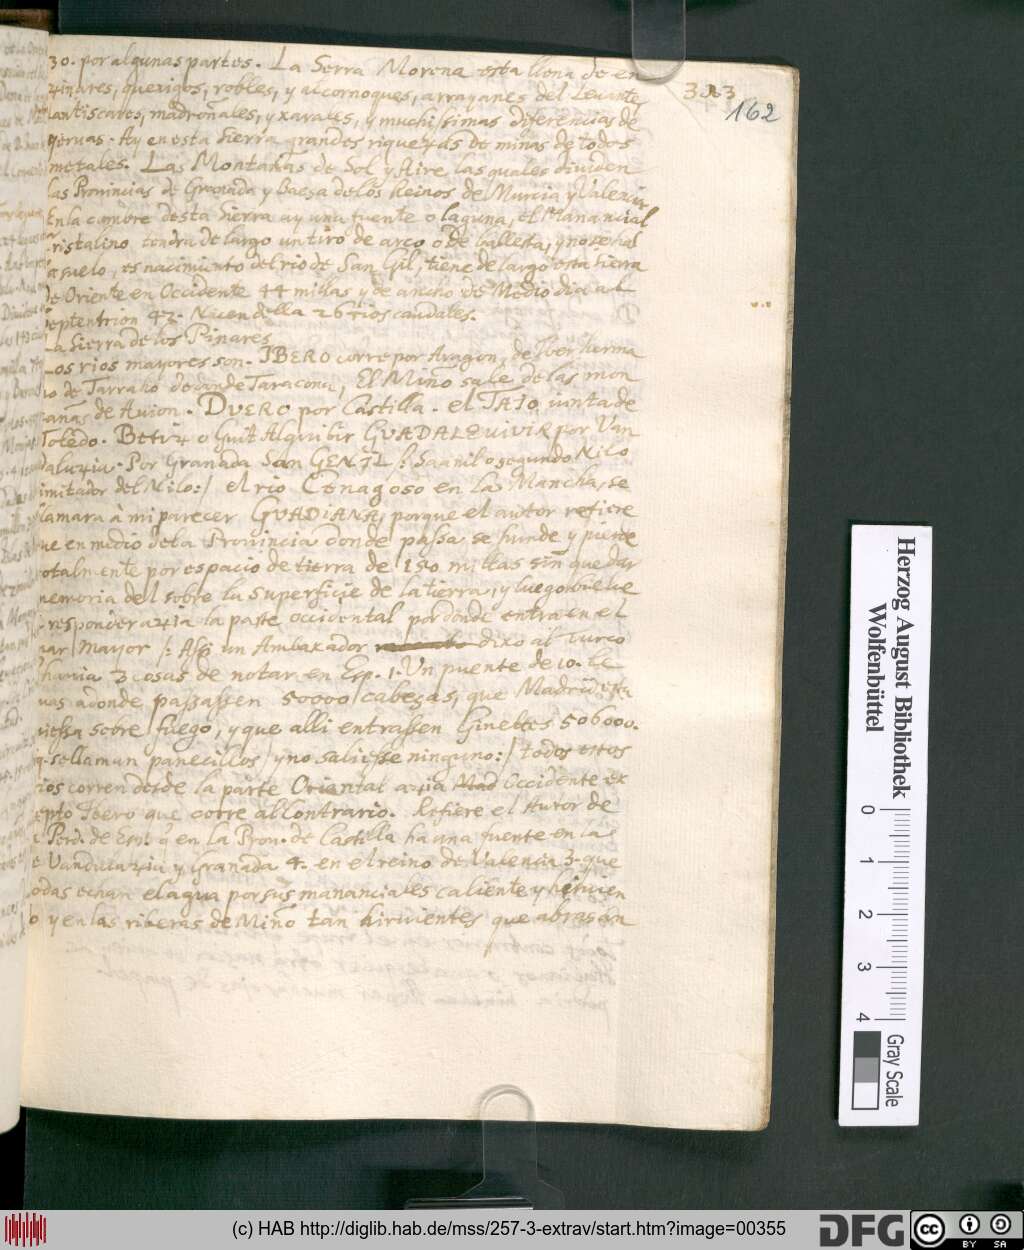 30. por algunas partes. La Serra Morena esta llena de en
zinares, quexigos, robles, y alcornoques, arrayanes del Levante,
lantiscares, madroñales, y xarales, y muchissimas diferencias de
yeruas. Ay en esta Sierra grandes riquezas de minas de todos
metales. Las Montañas de Sol y Aire las quales dividen
las Provincias de Granada y Baeza de los Reinos de Murcia y Valenzia
En la cumbre desta Sierra ay una fuente o laguna, el Manancial
cristalino tendra de largo un tiro de arco o de ballesta, y no se hal
la suelo, es nacimiento del rio de San Gil, tiene de largo esta Sierra
de Oriente en Occidente 44 millas y de ancho de Medio dia al
septentrion 42. Nacen della 26 rios caudales.
La Sierra de los Pinares
Los rios mayores son. IBERO corre por Aragon, de
de Tarraho de donde Taracona, El Miño sale de las mon
tanas de Auion. DVERO por Castilla. el TAJO junta de
Toledo. Betiz o Guit Alquibir GVADALQVIVIR por Van
daluzia. Por Granada San GENIL /: Saanil o segundo Nilo
imitador del Nilo:/ el rio Cenagoso en la Mancha, se
llamara à mi parecer GVADIANA, porque el autor refiere
que en medio de la Provincia donde passa se hunde y pierde
totalmente por espacio de tierra de 150 millas sin quedar
memoria del sobre la superficie de la tierra, y luego vuelve
responder azia la parte occidental por donde entra en el
mar Mayor /: Assi un Ambaxador dixo al Turco
havia 3 cosas de notar en Esp. 1. Un puente de 10. le
uas adonde passassen 50000 cabezas, que Madrid esta
uiessa sobre fuego, y que alli entrassen Ginettes 506000.
q. se llaman panecillos / y no saliesse ninguno:/ todos estos
rios corren desde la parte Oriental azia Occidente ex
epto Ibero que corre al Contrario. Refiere el Autor de
Perd. de Esp. q en la Prou. de Castilla ha una fuente en la
Vandaluzia y Granada 4. en el reino de Valencia 3. que
todas echan el agua por sus mananciales caliente y hervien
do y en las riberas de Miño tan hirvientes que abrasan
303
162
Herzog August Bibliothek
Wolfenbüttel
0 1 2 3 4
Gray Scale
(c) HAB http://diglib.hab.de/mss/257-3-extrav/start.htm?image=00355
DFG
cc BY SA